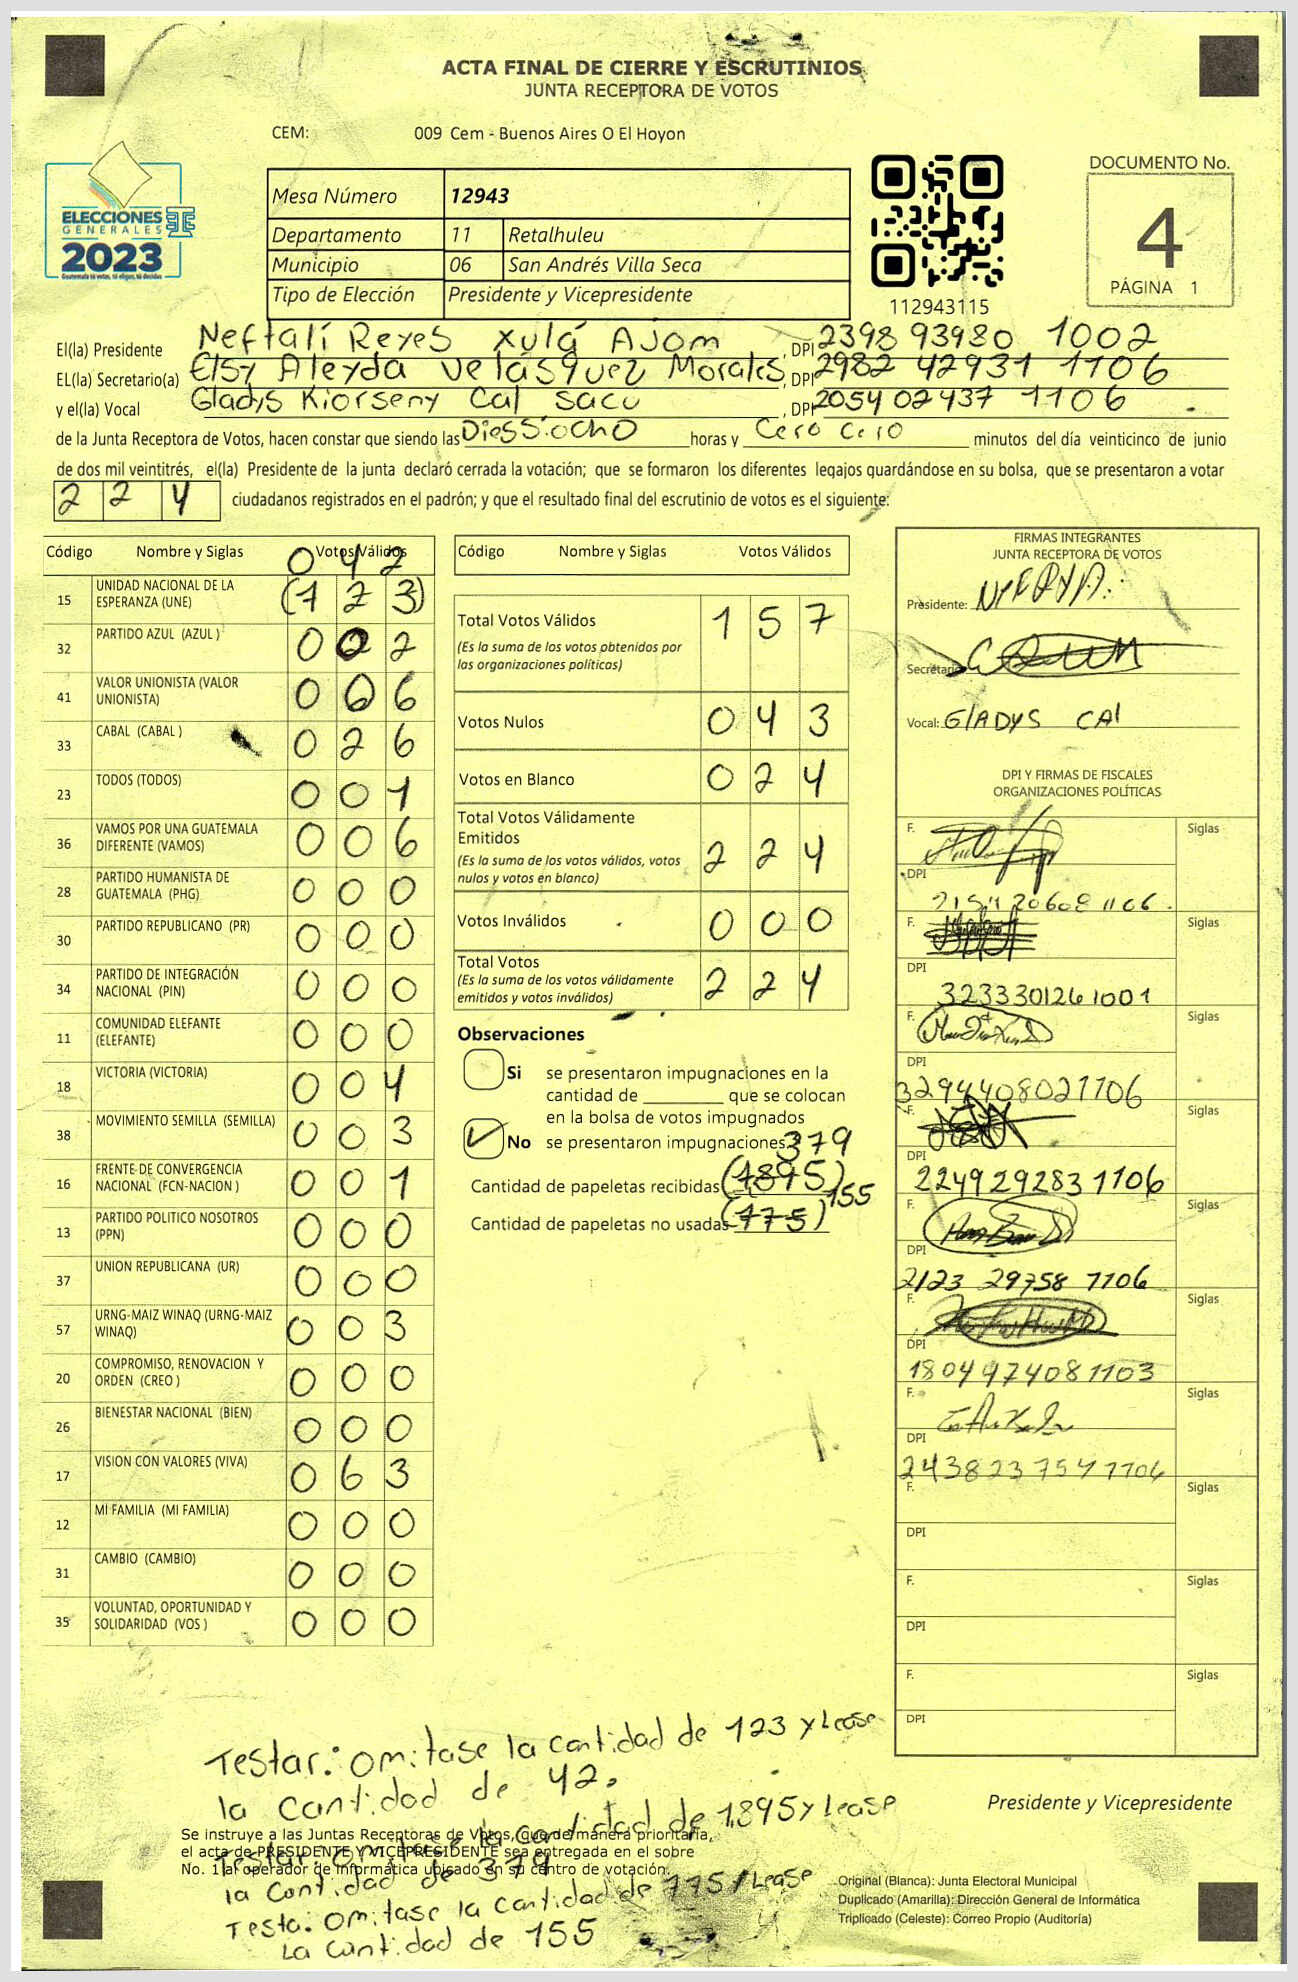 ACTA FINAL DE CIERRE Y ESCRUTINIOS
JUNTA RECEPTORA DE VOTOS
CEM: 009 Cem - Buenos Aires O El Hoyon
ELECCIONES
GENERALES
2023
Guatemala tú votas, tú eliges, tú decides
Mesa Número 12943
Departamento 11 Retalhuleu
Municipio 06 San Andrés Villa Seca
Tipo de Elección Presidente y Vicepresidente
112943115
DOCUMENTO No.
4
PÁGINA 1
El(la) Presidente Neftalí Reyes Xulá Ajom , DPI 2398 93980 1002
EL(la) Secretario(a) Elsy Aleyda Velásquez Morales, DPI 2982 42931 1106
y el(la) Vocal Gladys Kiorseny Cal Sacu , DPI 2054 02437 1106
de la Junta Receptora de Votos, hacen constar que siendo las Diessiocho horas y Cero Cero minutos del día veinticinco de junio
de dos mil veintitrés, el(la) Presidente de la junta declaró cerrada la votación; que se formaron los diferentes legajos guardándose en su bolsa, que se presentaron a votar
2 2 4 ciudadanos registrados en el padrón; y que el resultado final del escrutinio de votos es el siguiente:
Código Nombre y Siglas Votos Válidos
0 4 2
15 UNIDAD NACIONAL DE LA ESPERANZA (UNE) (1 2 3)
32 PARTIDO AZUL (AZUL ) 0 0 2
41 VALOR UNIONISTA (VALOR UNIONISTA) 0 0 6
33 CABAL (CABAL ) 0 2 6
23 TODOS (TODOS) 0 0 1
36 VAMOS POR UNA GUATEMALA DIFERENTE (VAMOS) 0 0 6
28 PARTIDO HUMANISTA DE GUATEMALA (PHG) 0 0 0
30 PARTIDO REPUBLICANO (PR) 0 0 0
34 PARTIDO DE INTEGRACIÓN NACIONAL (PIN) 0 0 0
11 COMUNIDAD ELEFANTE (ELEFANTE) 0 0 0
18 VICTORIA (VICTORIA) 0 0 4
38 MOVIMIENTO SEMILLA (SEMILLA) 0 0 3
16 FRENTE DE CONVERGENCIA NACIONAL (FCN-NACION ) 0 0 1
13 PARTIDO POLITICO NOSOTROS (PPN) 0 0 0
37 UNION REPUBLICANA (UR) 0 0 0
57 URNG-MAIZ WINAQ (URNG-MAIZ WINAQ) 0 0 3
20 COMPROMISO, RENOVACION Y ORDEN (CREO ) 0 0 0
26 BIENESTAR NACIONAL (BIEN) 0 0 0
17 VISION CON VALORES (VIVA) 0 6 3
12 MI FAMILIA (MI FAMILIA) 0 0 0
31 CAMBIO (CAMBIO) 0 0 0
35 VOLUNTAD, OPORTUNIDAD Y SOLIDARIDAD (VOS ) 0 0 0
Código Nombre y Siglas Votos Válidos
Total Votos Válidos 1 5 7
(Es la suma de los votos obtenidos por
las organizaciones políticas)
Votos Nulos 0 4 3
Votos en Blanco 0 2 4
Total Votos Válidamente
Emitidos 2 2 4
(Es la suma de los votos válidos, votos
nulos y votos en blanco)
Votos Inválidos 0 0 0
Total Votos 2 2 4
(Es la suma de los votos válidamente
emitidos y votos inválidos)
Observaciones
Si se presentaron impugnaciones en la
cantidad de ________ que se colocan
en la bolsa de votos impugnados
No se presentaron impugnaciones
379
Cantidad de papeletas recibidas (1895)
155
Cantidad de papeletas no usadas (775)
FIRMAS INTEGRANTES
JUNTA RECEPTORA DE VOTOS
Presidente:
Secretario
Vocal: GlADYS CAl
DPI Y FIRMAS DE FISCALES
ORGANIZACIONES POLÍTICAS
F. Siglas
DPI
F. Siglas
DPI
3233301261001
F. Siglas
DPI
3294408021106
F. Siglas
DPI
2249292831106
F. Siglas
DPI
2123 29758 1106
F. Siglas
DPI
1804974081103
F. Siglas
DPI
2438237541106
F. Siglas
DPI
F. Siglas
DPI
F. Siglas
DPI
Testar: Omitase la cantidad de 123 y Lease
la cantidad de 42.
Testar: Omitase la cantidad de 1895 y Lease
la cantidad de 379
Testa: Omitase la cantidad de 775 / Lease
La cantidad de 155
Se instruye a las Juntas Receptoras de Votos, que de manera prioritaria,
el acta de PRESIDENTE Y VICEPRESIDENTE sea entregada en el sobre
No. 1 al operador de informática ubicado en su centro de votación.
Presidente y Vicepresidente
Original (Blanca): Junta Electoral Municipal
Duplicado (Amarilla): Dirección General de Informática
Triplicado (Celeste): Correo Propio (Auditoría)